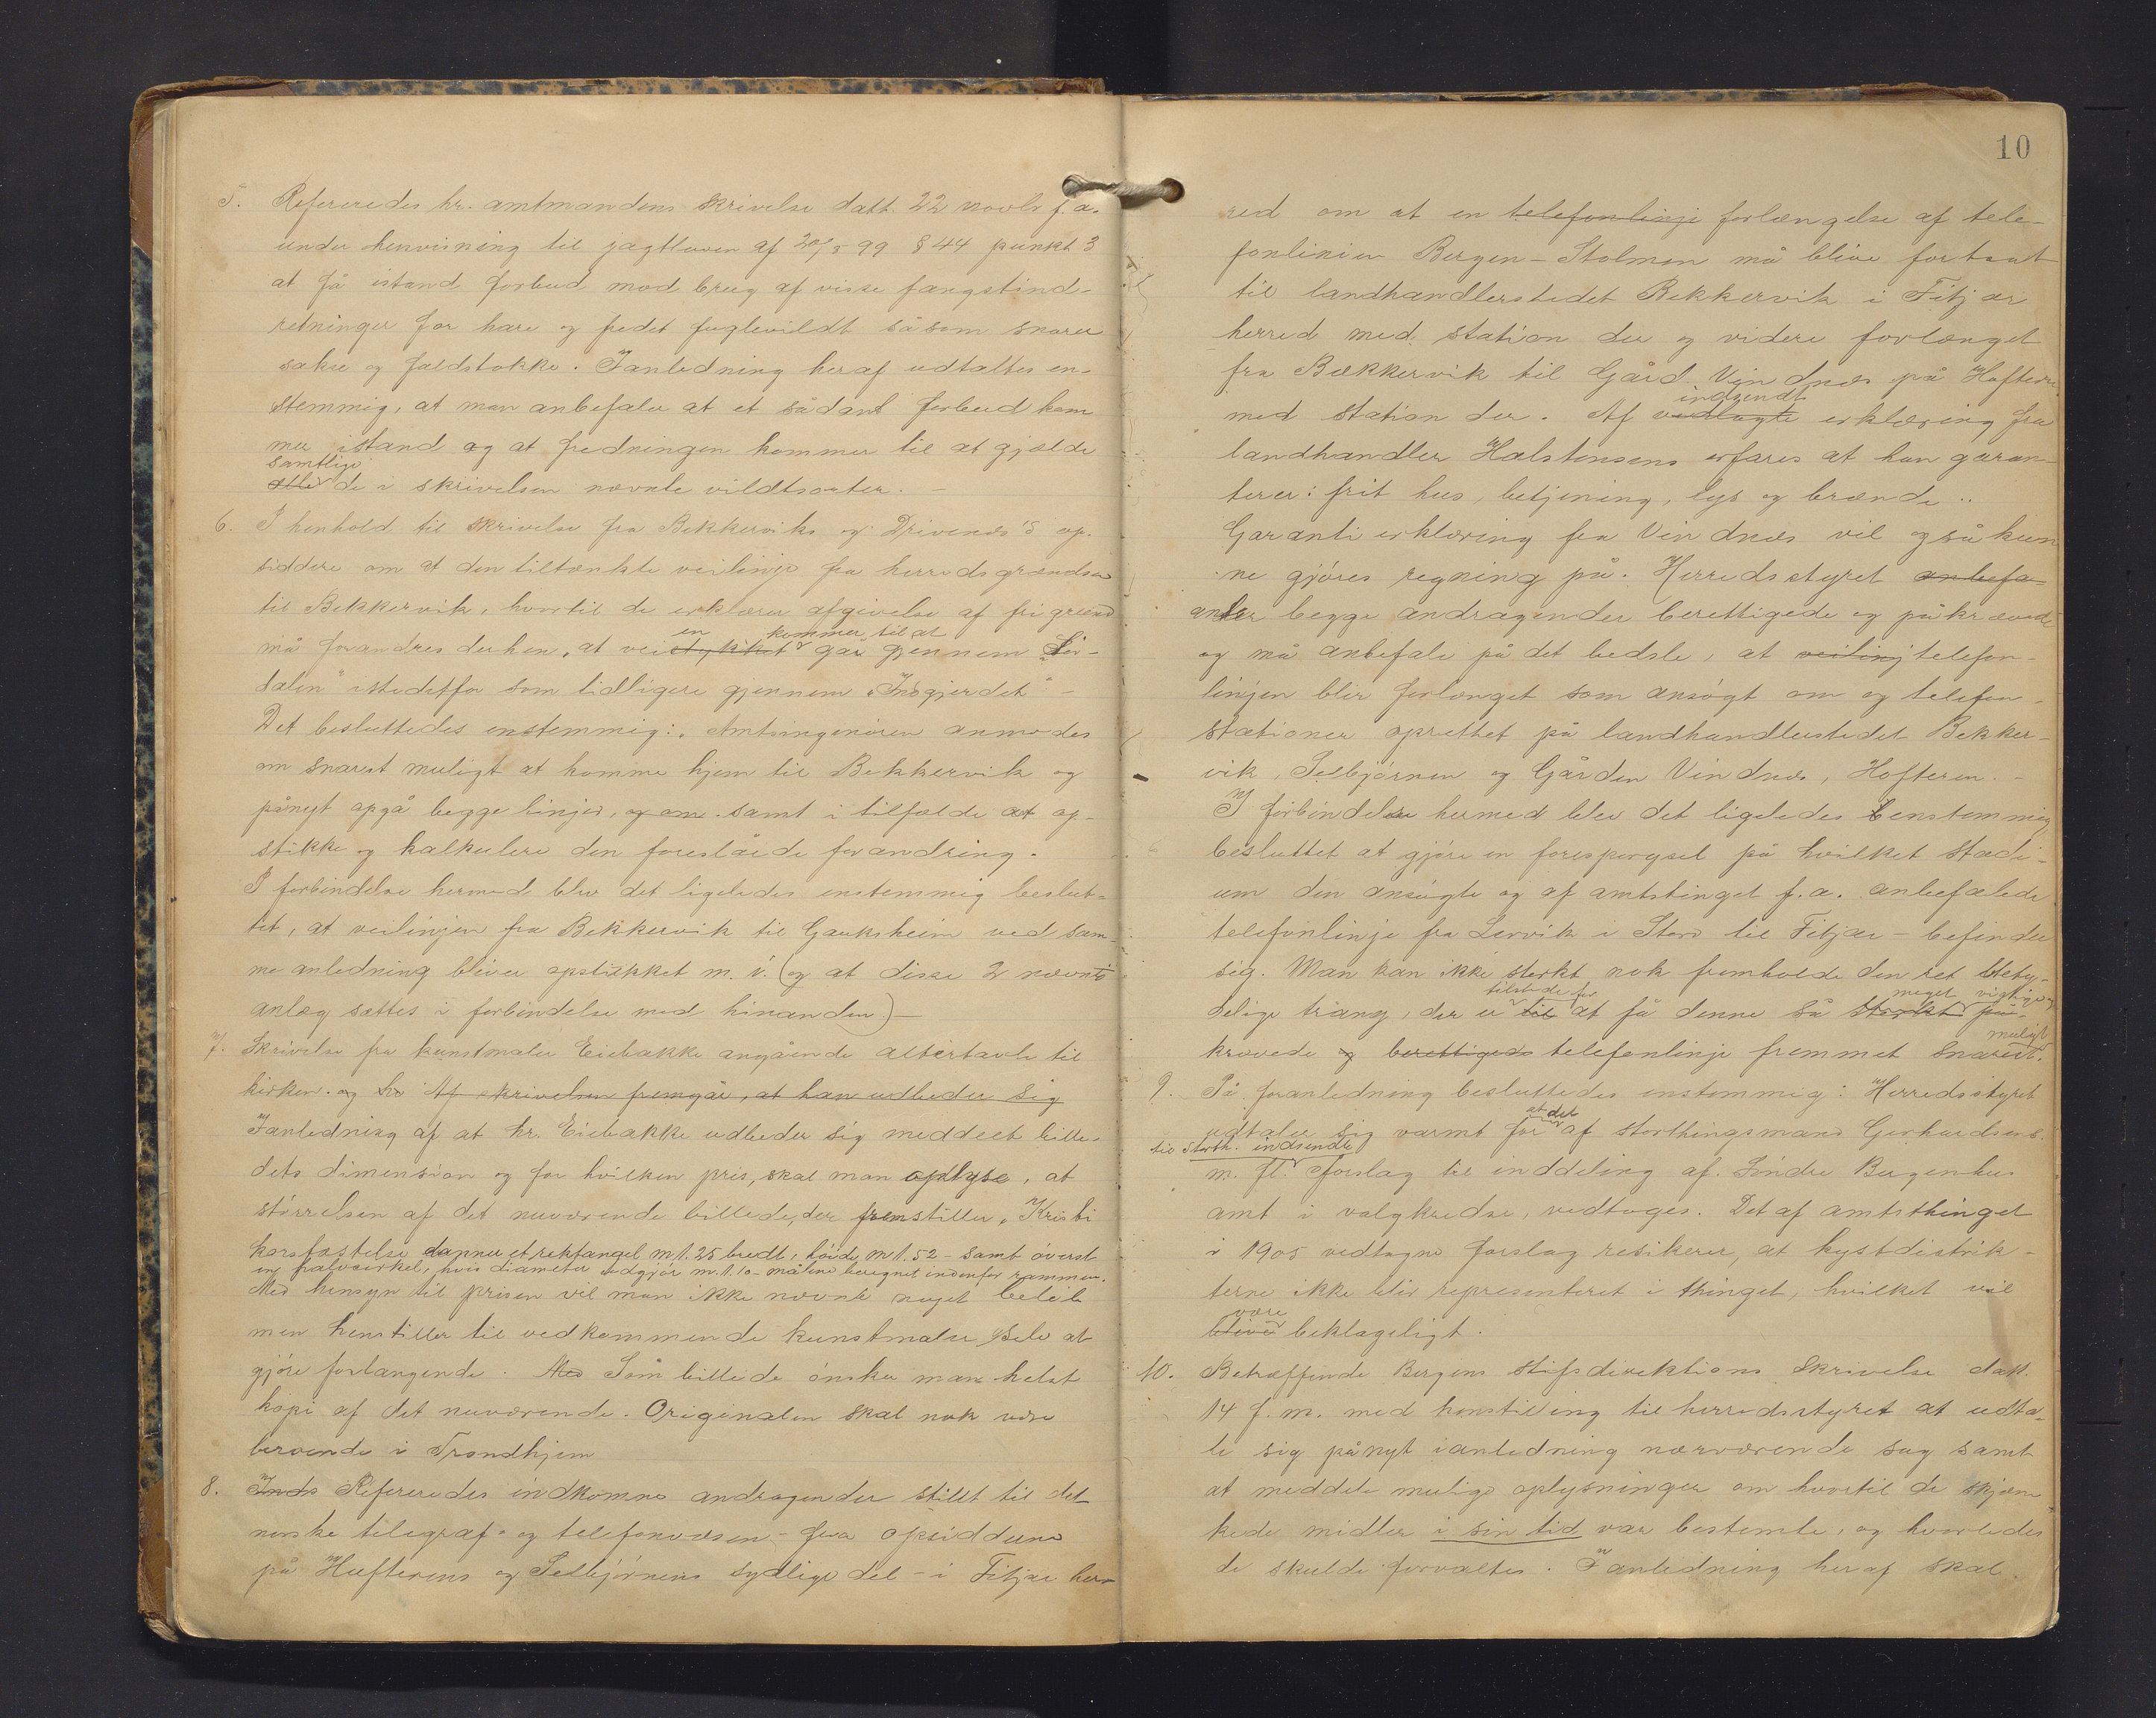 5. Refereredes hr. amtmandens skrivelse datt. 22 novbr f.a.
under henvisning til jagtloven af 20/5 99 § 44 punkt 3
at få istand forbud mod brug af visse fangstind-
retninger for hare og fredet fuglevildt såsom snarer
sakse og faldstokke. Ianledning heraf udtaltes en-
stemmig, at man anbefaler at et sådant forbud kom
mer istand og at fredningen kommer til at gjælde
samtlige
alle de i skrivelsen nævnte vildtsorter. –
6. I henhold til skrivelse fra Bekkerviks og Drivenes's op-
siddere om at den tiltænkte veilinje fra herredsgrændsen
til Bekkervik, hvortil de erklærer afgivelse af fri grund
en kommer til at
må forandres derhen, at veistykket gå gjennem „Lør-
dalen" istedetfor som tidligere gjennem „Indgjerdet" –
Det besluttedes enstemmig: Amtsingeniøren anmodes
om snarest muligt at komme hjem til Bekkervik og
pånyt opgå begge linjer, og om samt i tilfælde at op-
stikke og kalkulere den foreslåede forandring.
I forbindelse hermed blev det ligeledes enstemmig beslut-
tet, at veilinjen fra Bekkervik til Gauksheim ved sam-
me anledning bliver opstukket m. v. (og at disse 2 nævnte
anlæg sættes i forbindelse med hinanden.) –
7. Skrivelse fra kunstmaler Eiebakke angående altertavle til
kirken. og ho Af skrivelsen fremgår, at han udbeder sig
Ianledning af at hr. Eiebakke udbeder sig meddelt bille-
dets dimension og for hvilken pris, skal man oplyse, at
størrelsen af det nuværende billede, der fremstiller „Kristi
korsfæstelse danner et rektangel m 1.25 bredt, høide m 1.52 – samt øverst
en halvcirkel, hvis diameter udgjør m. 1.10 – målene beregnet indenfor rammen.
Med hensyn til prisen vil man ikke nævne noget beløb
men henstiller til vedkommende kunstmaler selv at
gjøre forlangende. Med Som billede ønsker man helst
kopi af det nuværende. Originalen skal nok være
beroende i Trondhjem
8. Inds Refereredes indkomne andragender stillet til det
norske telegraf- og telefonvæsen – fra opsidderne
på Hufterens og Selbjørnens sydlige del – i Fitjar her-
10
red om at en telefonlinje forlængelse af tele-
fonlinien Bergen – Stolmen må blive fortsat
til landhandlerstedet Bekkervik i Fitjar
herred med station der og videre forlænget
fra Bækkervik til Gård Vindnes på Hufteren
indsendt
med station der. Af vedlagte erklæring fra
landhandler Halstensens erfares at han garan-
terer: frit hus, betjening, lys og brænde..
Garanti erklæring fra Vindnes vil også kun
ne gjøres regning på. Herredsstyret anbefa
anser begge andragender berettigede og påkrævede
og må anbefale på det bedste, at veilinj telefon-
linjen blir forlænget som ansøgt om og telefon-
stationer oprettet på landhandlerstedet Bekker-
vik, Selbjørnen og Gården Vindnes, Hufteren. –
I forbindelse hermed blev det ligeledes enstemmig
besluttet at gjøre en forespørgsel på hvilket stadi-
um den ansøgte og af amtstinget f.a. anbefalede
telefonlinje fra Lervik i Stord til Fitjar – befinder
sig. Man kan ikke sterkt nok fremholde den ret bety-
tilstede for meget vigtige og
delige trang, der er til at få denne så sterkt på-
muligt
krævede og berettigede telefonlinje fremmet snarest.
9. På foranledning besluttedes enstemmig: Herredsstyret
at det
udtaler sig varmt for af storthingsmand Gerhardsen
til Storth. indsendte
m. fl. forslag til inddeling af Søndre Bergenhus
amt i valgkredse, vedtages. Det af amtsthinget
i 1905 vedtagne forslag resikerer, at kystdistrik-
terne ikke blir representeret i thinget, hvilket vil
være
blive beklageligt.
10. Betræffende Bergens stifsdirektions skrivelse datt.
14 f. m. med henstilling til herredsstyret at udta-
le sig pånyt ianledning nærværende sag samt
at meddele mulige oplysninger om hvortil de skjæn-
kede midler i sin tid var bestemte, og hvorledes
de skulde forvaltes. Ianledning heraf skal